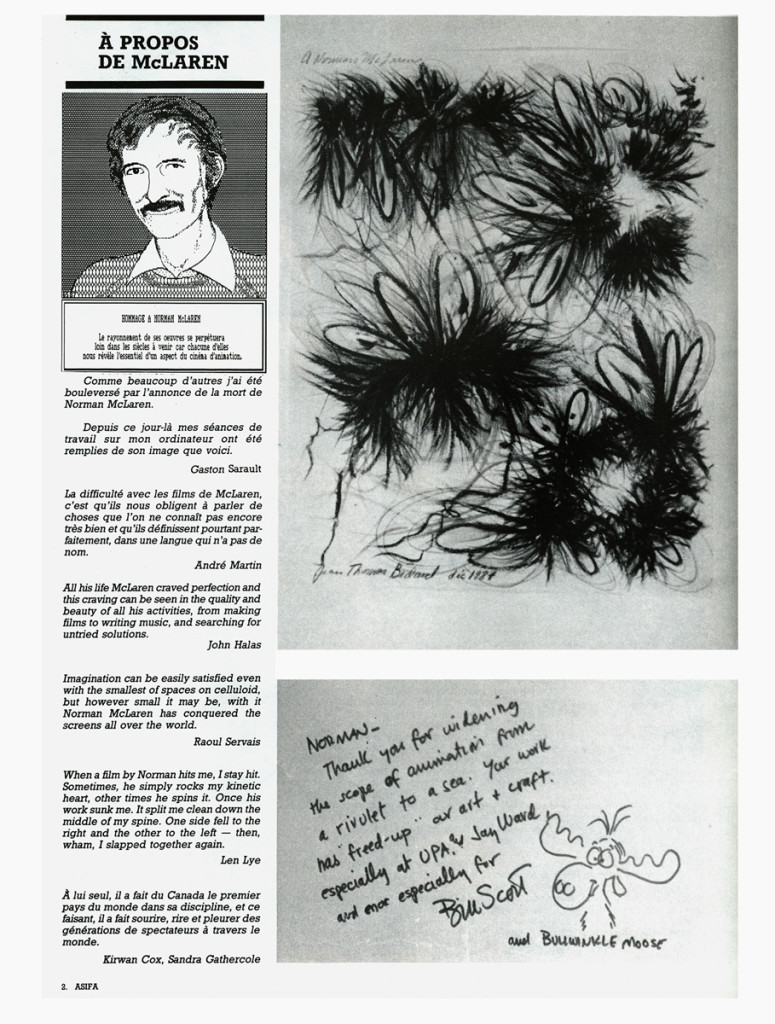 À PROPOS
DE McLAREN
HOMMAGE A NORMAN McLAREN
Le rayonnement de ses oeuvres se perpétuera
loin dans les siècles à venir car chacune d'elles
nous révèle l'essentiel d'un aspect du cinéma d'animation.
Comme beaucoup d'autres j'ai été
bouleversé par l'annonce de la mort de
Norman McLaren.
Depuis ce jour-là mes séances de
travail sur mon ordinateur ont été
remplies de son image que voici.
Gaston Sarault
La difficulté avec les films de McLaren,
c'est qu'ils nous obligent à parler de
choses que l'on ne connaît pas encore
très bien et qu'ils définissent pourtant par-
faitement, dans une langue qui n'a pas de
nom.
André Martin
All his life McLaren craved perfection and
this craving can be seen in the quality and
beauty of all his activities, from making
films to writing music, and searching for
untried solutions.
John Halas
Imagination can be easily satisfied even
with the smallest of spaces on celluloid,
but however small it may be, with it
Norman McLaren has conquered the
screens all over the world.
Raoul Servais
When a film by Norman hits me, I stay hit.
Sometimes, he simply rocks my kinetic
heart, other times he spins it. Once his
work sunk me. It split me clean down the
middle of my spine. One side fell to the
right and the other to the left — then,
wham, I slapped together again.
Len Lye
À lui seul, il a fait du Canada le premier
pays du monde dans sa discipline, et ce
faisant, il a fait sourire, rire et pleurer des
générations de spectateurs à travers le
monde.
Kirwan Cox, Sandra Gathercole
2. ASIFA
A Norman McLaren
Jean Thomas Bédard déc 1987
NORMAN -
Thank you for widening
the scope of animation from
a rivulet to a sea. Your work
has "freed-up" our art + craft.
especially at UPA & Jay Ward,
and most especially for
Bill Scott
and BULLWINKLE MOOSE